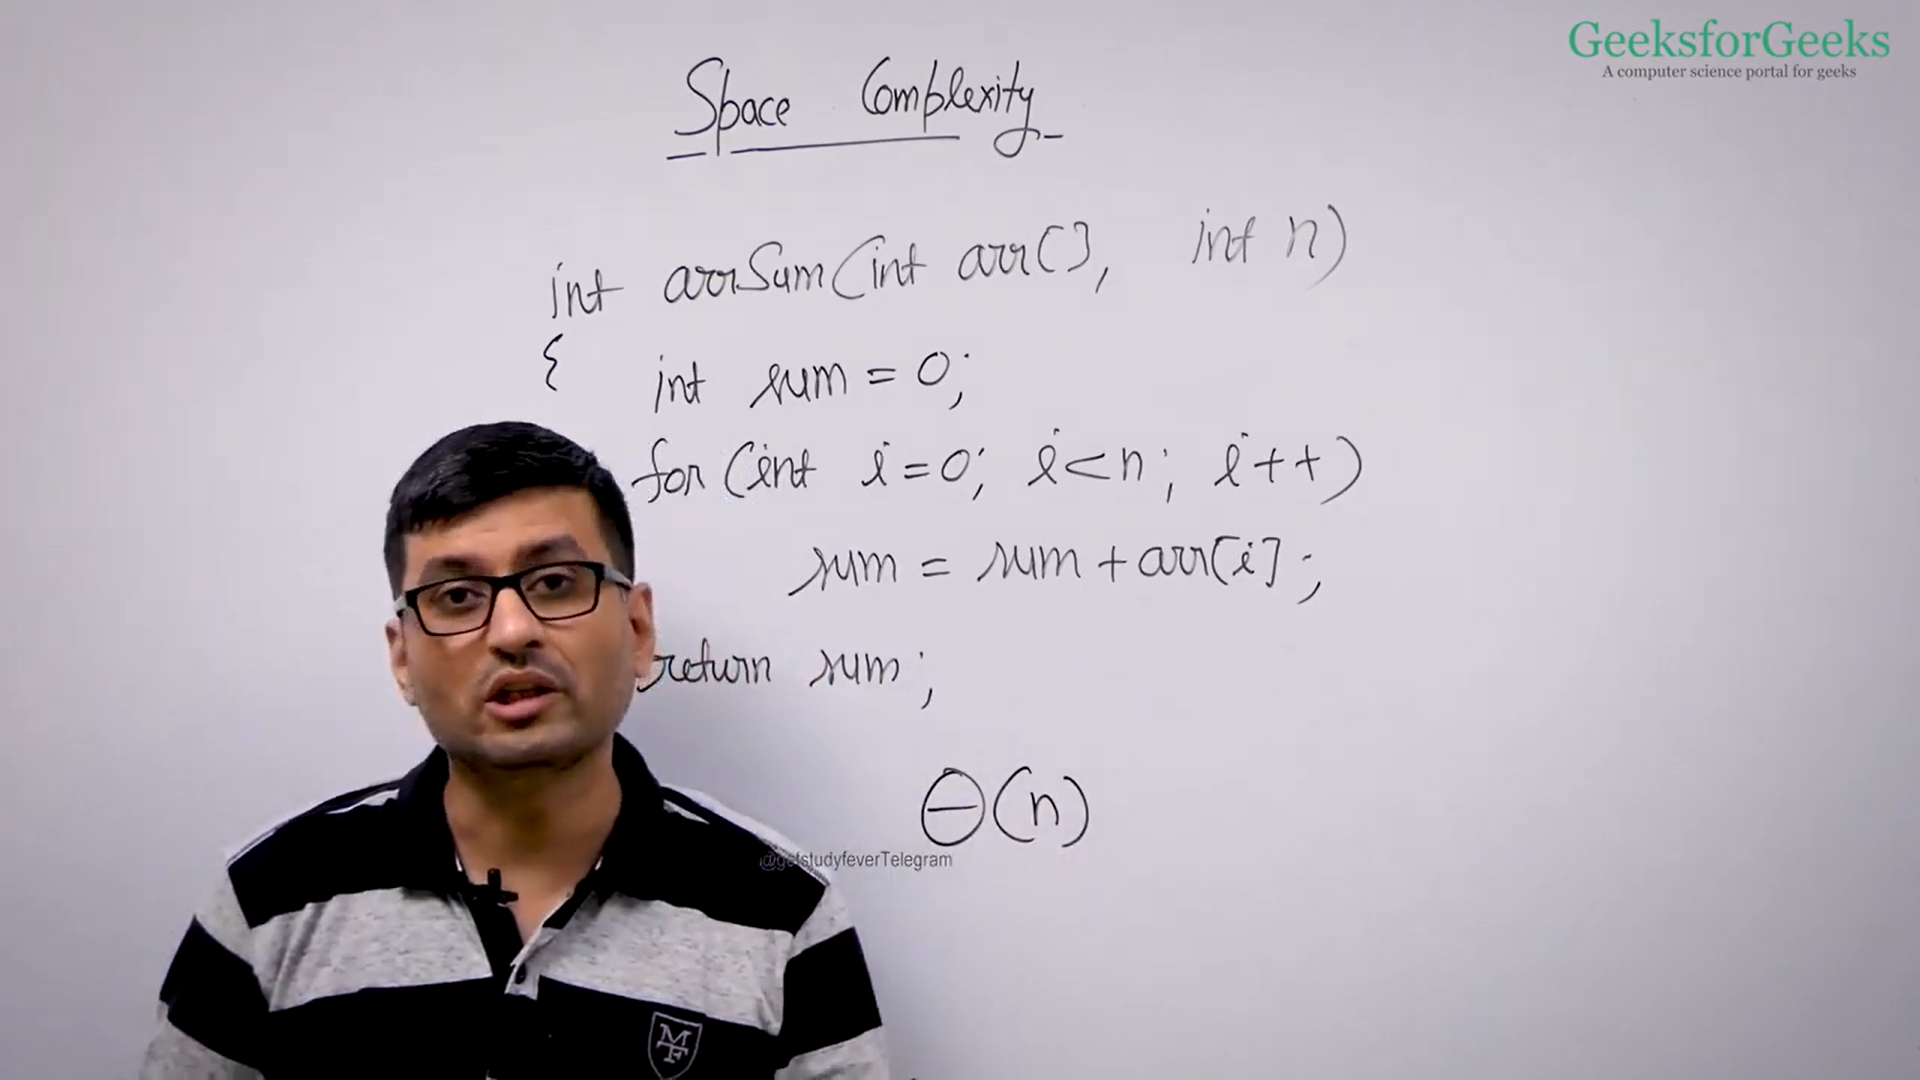 GeeksforGeeks
A computer science portal for geeks
Space Complexity
int arrSum(int arr[], int n)
{
int sum = 0;
for (int i=0; i<n; i++)
sum = sum + arr[i];
return sum;
Θ(n)
@getstudyfeverTelegram
MF